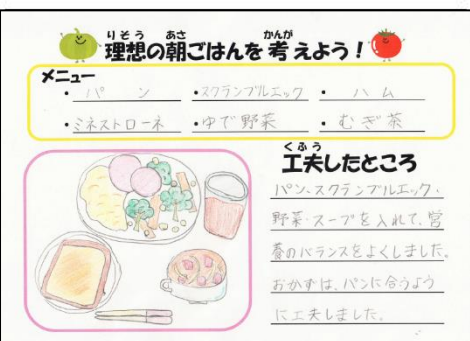 りそう あさ かんが
理想の朝ごはんを考えよう！
メニュー
・パン ・スクランブルエッグ ・ハム
・ミネストローネ ・ゆで野菜 ・むぎ茶
くふう
工夫したところ
パン、スクランブルエッグ、
野菜、スープを入れて、宮
養のバランスをよくしました。
おかずは、パンに合うよう
に工夫しました。